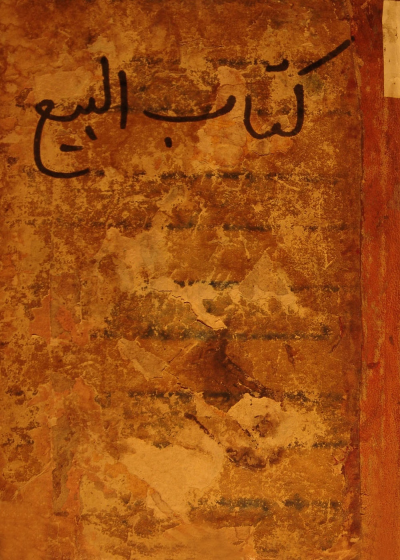 كتاب البيع